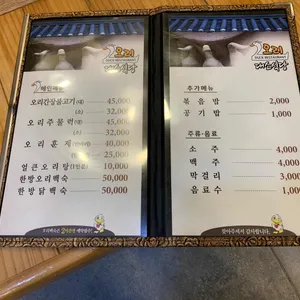 오리
DUCK RESTAURANT
대송식당
메인메뉴
오리간장불고기 (대) 45,000
(소) 32,000
오리주물럭 (대) 45,000
(소) 32,000
오리훈제 40,000
25,000
얼큰오리탕 10,000
한방오리백숙 50,000
한방닭백숙 50,000
오리
DUCK RESTAURANT
대송식당
추가메뉴
볶음밥 2,000
공기밥 1,000
주류·음료
소주 4,000
맥주 4,000
막걸리 3,000
음료수 1,000
찾아주셔서 감사합니다.